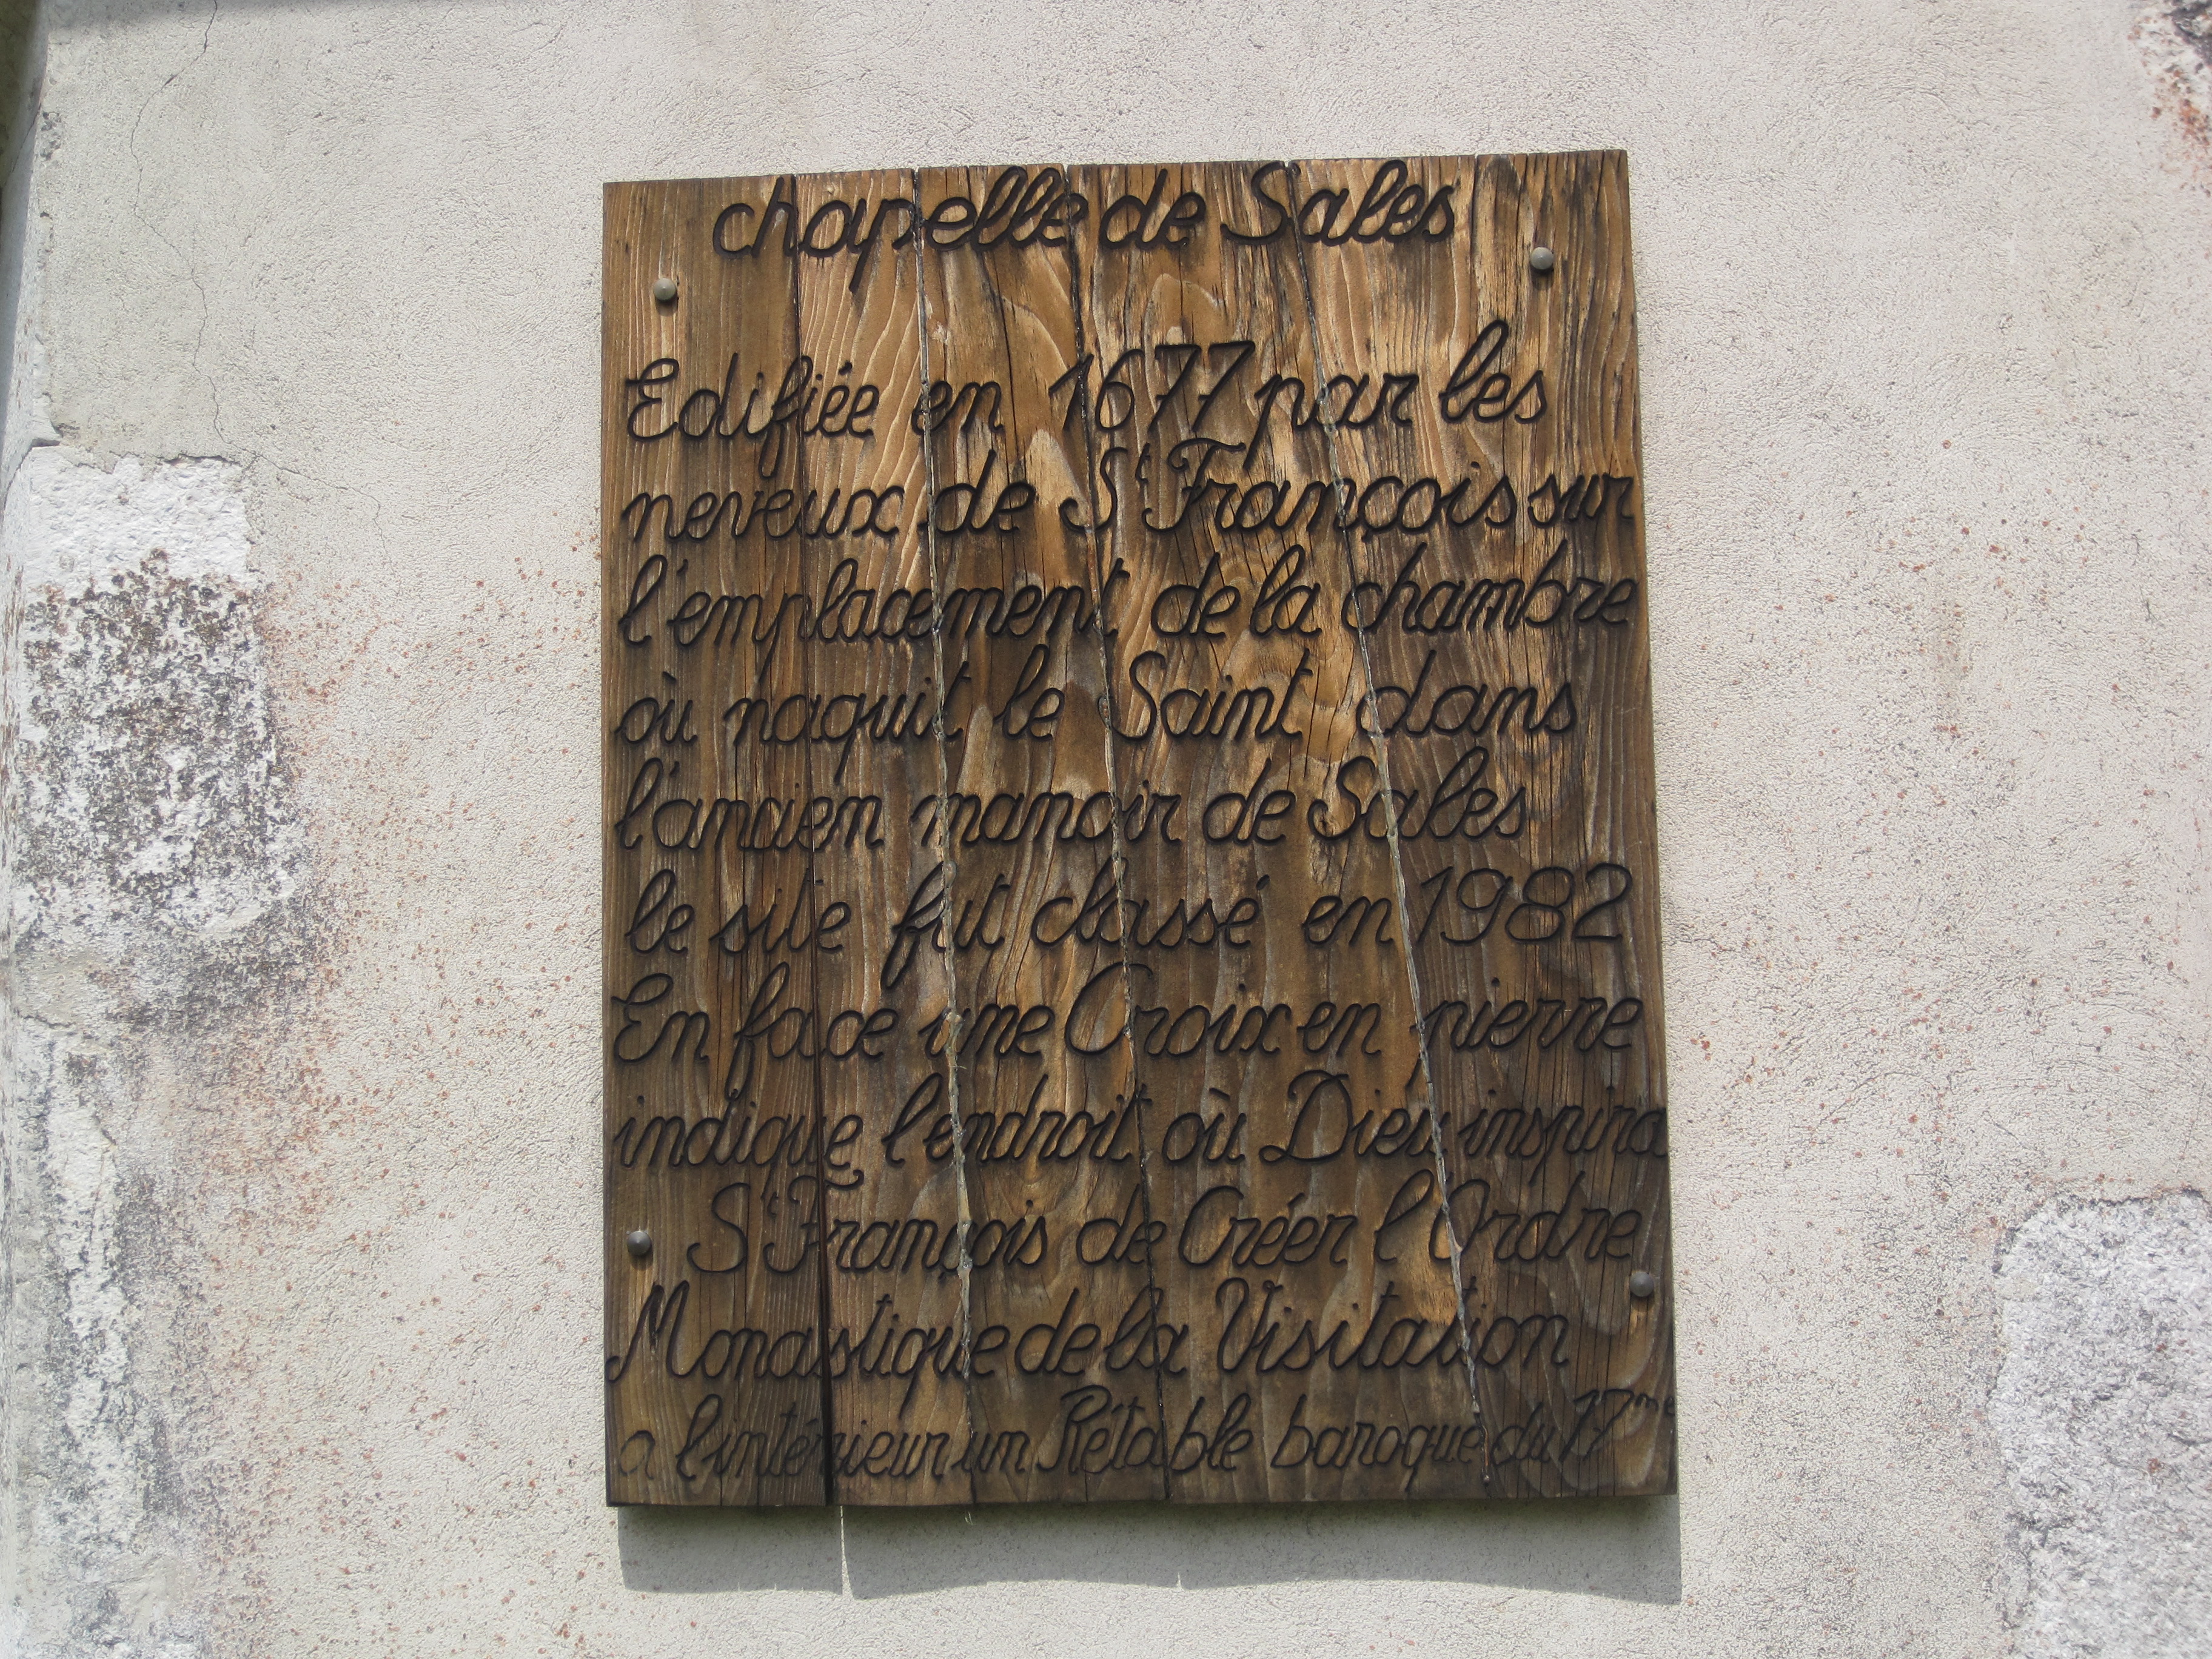 chapelle de Sales
Edifiée en 1677 par les
neveux de St François sur
l'emplacement de la chambre
où naquit le Saint dans
l'ancien manoir de Sales
le site fut classé en 1982
En face une Croix en pierre
indique l'endroit où Dieu inspira
St François de Créer l'Ordre
Monastique de la Visitation
a l'intérieur un Rétable baroque du 17me